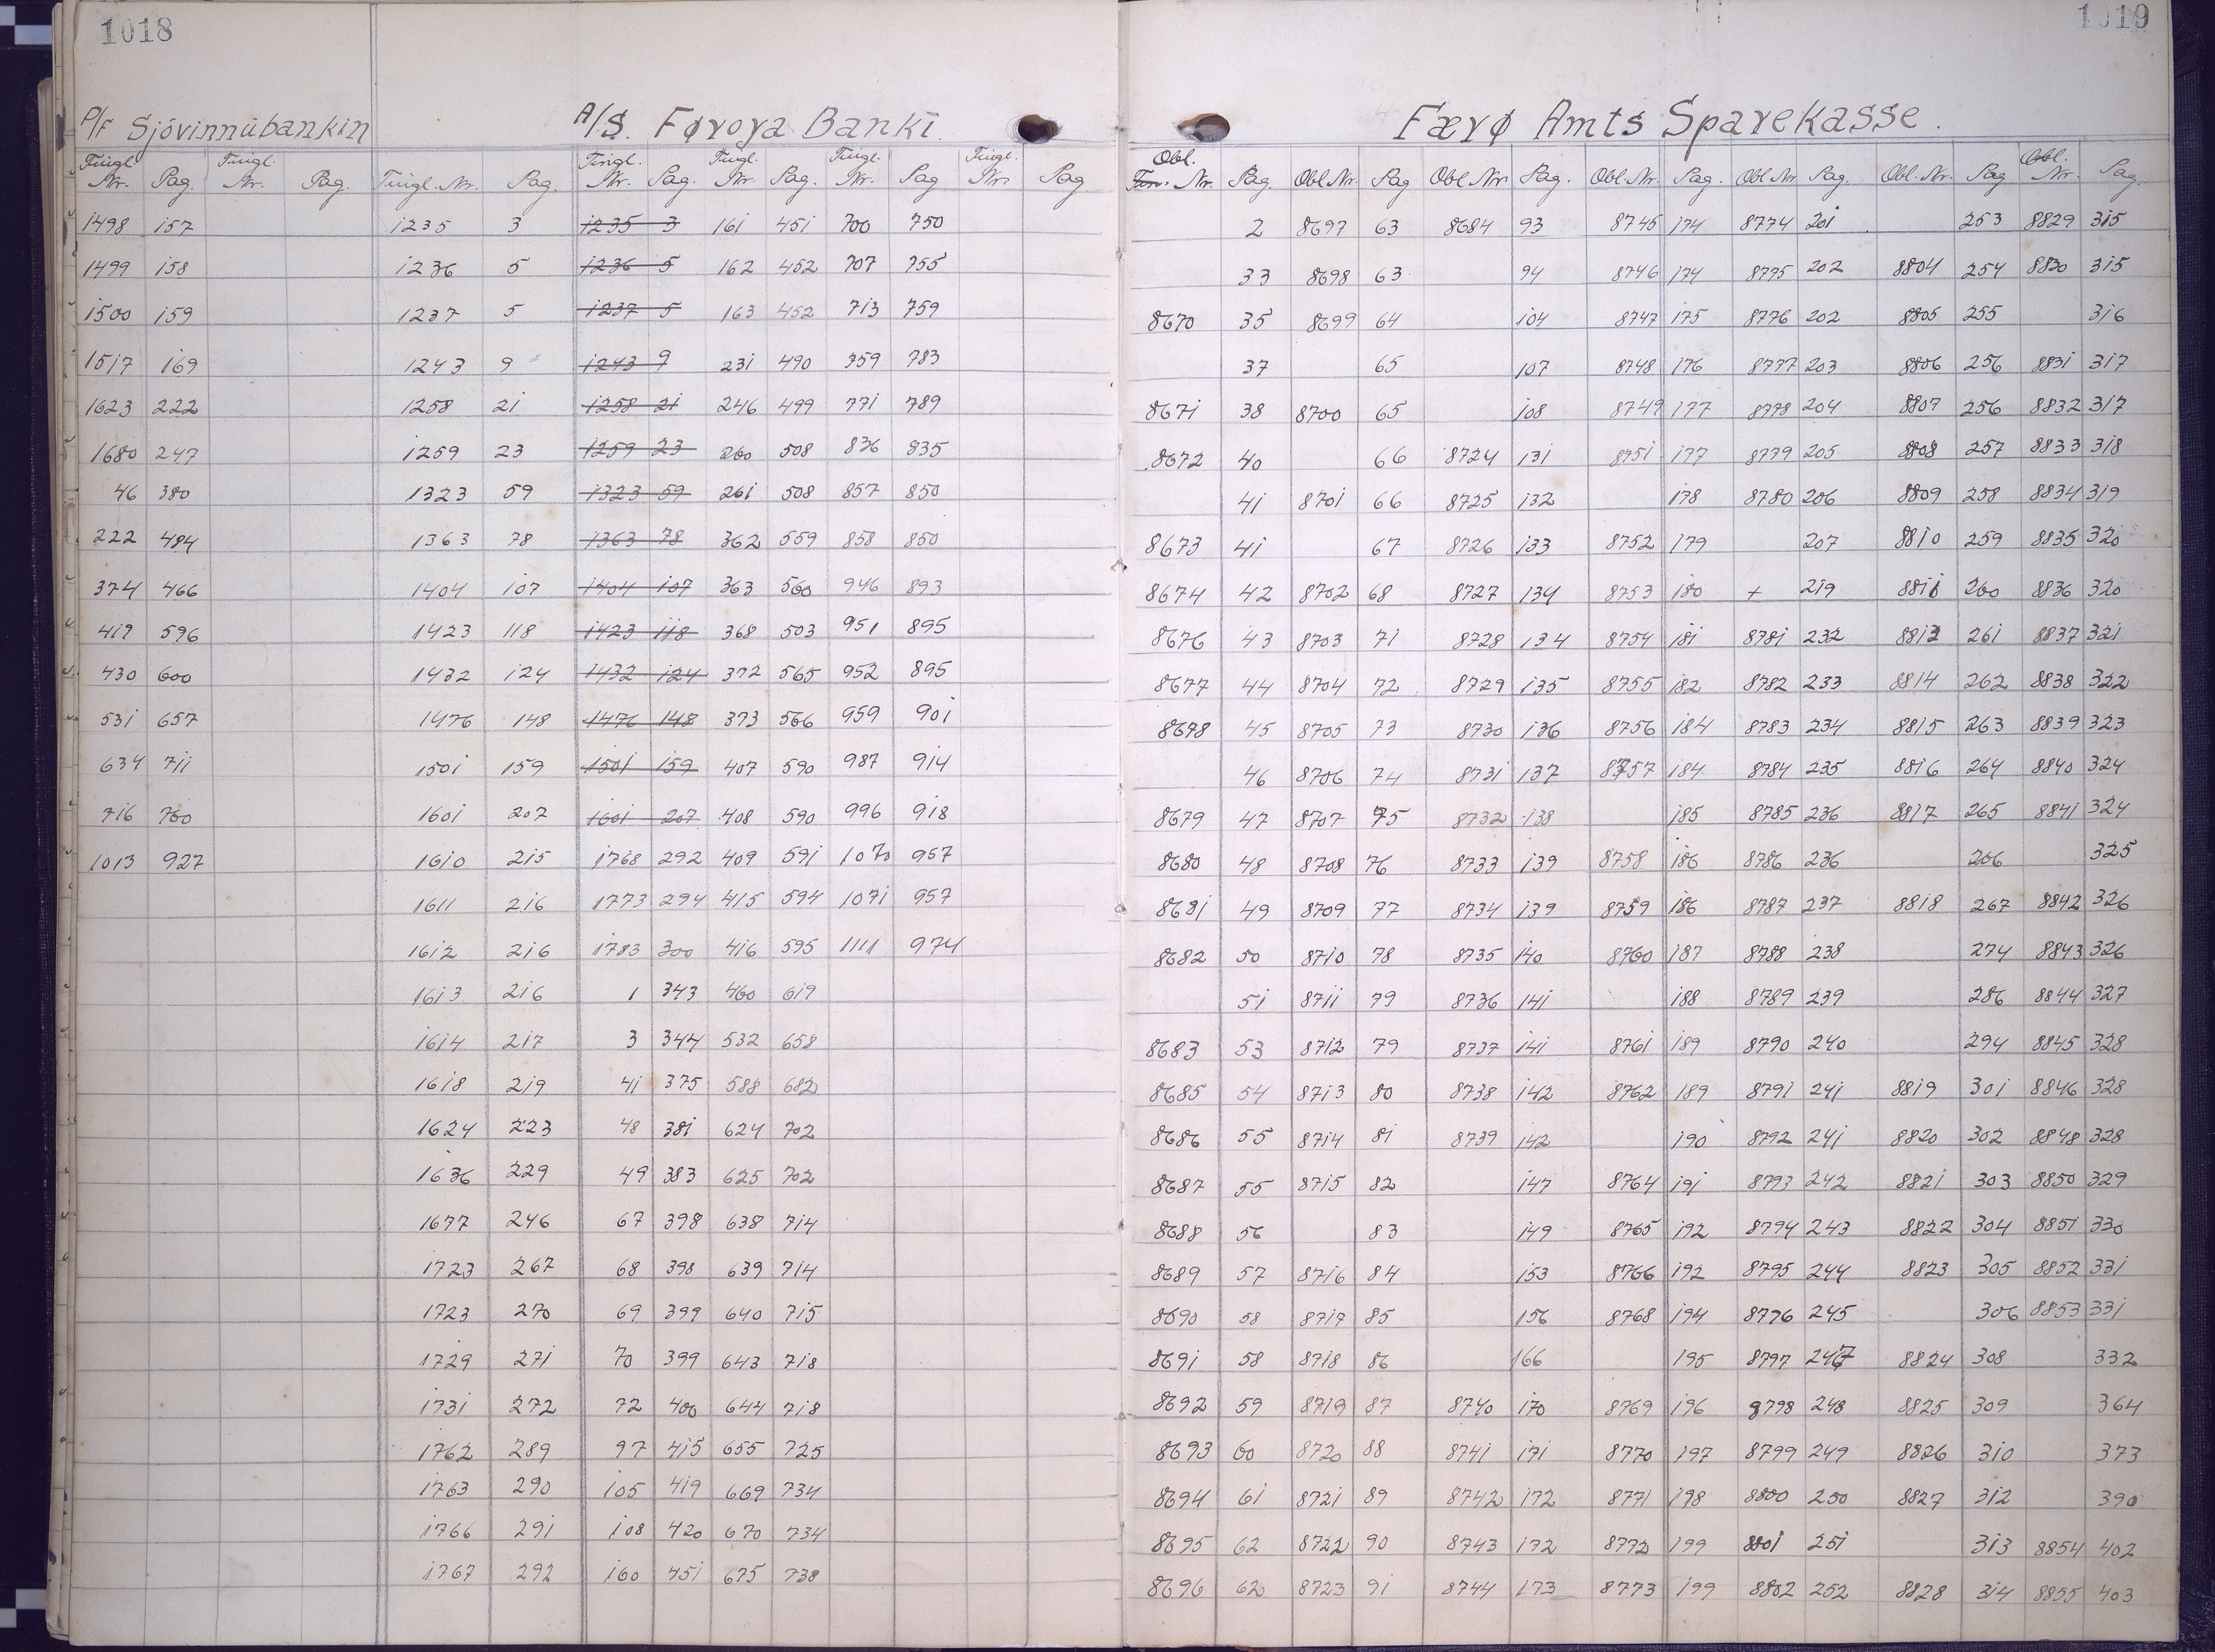 1018
P/F Sjóvinnubankin
A/S. Føroya Banki.
Tingl. Nr. Pag. Tingl. Nr. Pag. Tingl. Nr. Pag. Tingl. Nr. Pag. Tingl. Nr. Pag. Tingl. Nr. Pag Tingl. Nr. Pag
1498 157 1235 3 1235 3 161 451 700 750
1499 158 1236 5 1236 5 162 452 707 755
1500 159 1237 5 1237 5 163 452 713 759
1517 169 1243 9 1243 9 231 490 759 783
1623 222 1258 21 1258 21 246 499 771 789
1680 247 1259 23 1259 23 260 508 836 835
46 380 1323 59 1323 59 261 508 857 850
222 484 1363 78 1363 78 362 559 858 850
374 466 1404 107 1404 107 363 560 946 893
419 596 1423 118 1423 118 368 503 951 895
430 600 1432 124 1432 124 372 565 952 895
531 657 1476 148 1476 148 373 566 959 901
634 711 1501 159 1501 159 407 590 987 914
716 760 1601 207 1601 207 408 590 996 918
1013 927 1610 215 1768 292 409 591 1070 957
1611 216 1773 294 415 594 1071 957
1612 216 1783 300 416 595 1111 974
1613 216 1 343 460 619
1614 217 3 344 532 658
1618 219 41 375 588 682
1624 223 48 381 624 702
1636 229 49 383 625 702
1677 246 67 398 638 714
1723 267 68 398 639 714
1723 270 69 399 640 715
1729 271 70 399 643 718
1731 272 72 400 644 718
1762 289 97 415 655 725
1763 290 105 419 669 734
1766 291 108 420 670 734
1767 292 160 451 675 738
1019
Færø Amts Sparekasse.
Obl. Nr. Pag Obl Nr. Pag Obl Nr Pag. Obl. Nr. Pag. Obl Nr Pag. Obl. Nr. Pag Obl. Nr. Pag.
2 8697 63 8684 93 8745 174 8774 201 253 8829 315
33 8698 63 94 8746 174 8775 202 8804 254 8830 315
8670 35 8699 64 104 8747 175 8776 202 8805 255 316
37 65 107 8748 176 8777 203 8806 256 8831 317
8671 38 8700 65 108 8749 177 8778 204 8807 256 8832 317
8672 40 66 8724 131 8751 177 8779 205 8808 257 8833 318
41 8701 66 8725 132 178 8780 206 8809 258 8834 319
8673 41 67 8726 133 8752 179 207 8810 259 8835 320
8674 42 8702 68 8727 134 8753 180 + 219 8811 260 8836 320
8676 43 8703 71 8728 134 8754 181 8781 232 8813 261 8837 321
8677 44 8704 72 8729 135 8755 182 8782 233 8814 262 8838 322
8678 45 8705 73 8730 136 8756 184 8783 234 8815 263 8839 323
46 8706 74 8731 137 8757 184 8784 235 8816 264 8840 324
8679 47 8707 75 8732 138 185 8785 236 8817 265 8841 324
8680 48 8708 76 8733 139 8758 186 8786 236 266 325
8681 49 8709 77 8734 139 8759 186 8787 237 8818 267 8842 326
8682 50 8710 78 8735 140 8760 187 8788 238 274 8843 326
51 8711 79 8736 141 188 8789 239 286 8844 327
8683 53 8712 79 8737 141 8761 189 8790 240 294 8845 328
8685 54 8713 80 8738 142 8762 189 8791 241 8819 301 8846 328
8686 55 8714 81 8739 142 190 8792 241 8820 302 8848 328
8687 55 8715 82 147 8764 191 8793 242 8821 303 8850 329
8688 56 83 149 8765 192 8794 243 8822 304 8851 330
8689 57 8716 84 153 8766 192 8795 244 8823 305 8852 331
8690 58 8717 85 156 8768 194 8776 245 306 8853 331
8691 58 8718 86 166 195 8797 247 8824 308 332
8692 59 8719 87 8740 170 8769 196 8798 248 8825 309 364
8693 60 8720 88 8741 171 8770 197 8799 249 8826 310 373
8694 61 8721 89 8742 172 8771 198 8800 250 8827 312 390
8695 62 8722 90 8743 172 8772 199 8801 251 313 8854 402
8696 62 8723 91 8744 173 8773 199 8802 252 8828 314 8855 403